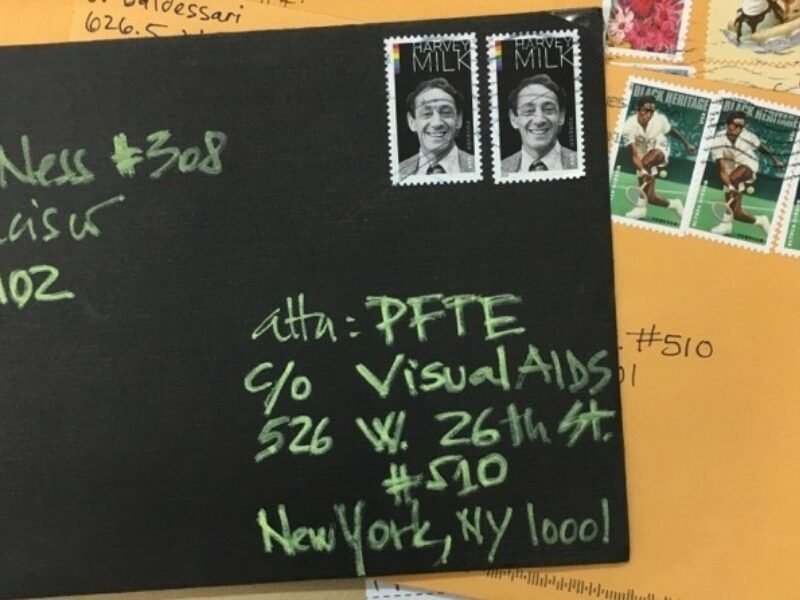 Baldessari
626.5
HARVEY
MILK
HARVEY
MILK
BLACK HERITAGE
BLACK HERITAGE
FOREVER
FOREVER
Ness #308
cisco
102
attn: PFTE
c/o Visual AIDS
526 W. 26th St.
#510
New York, NY 10001
#510
01